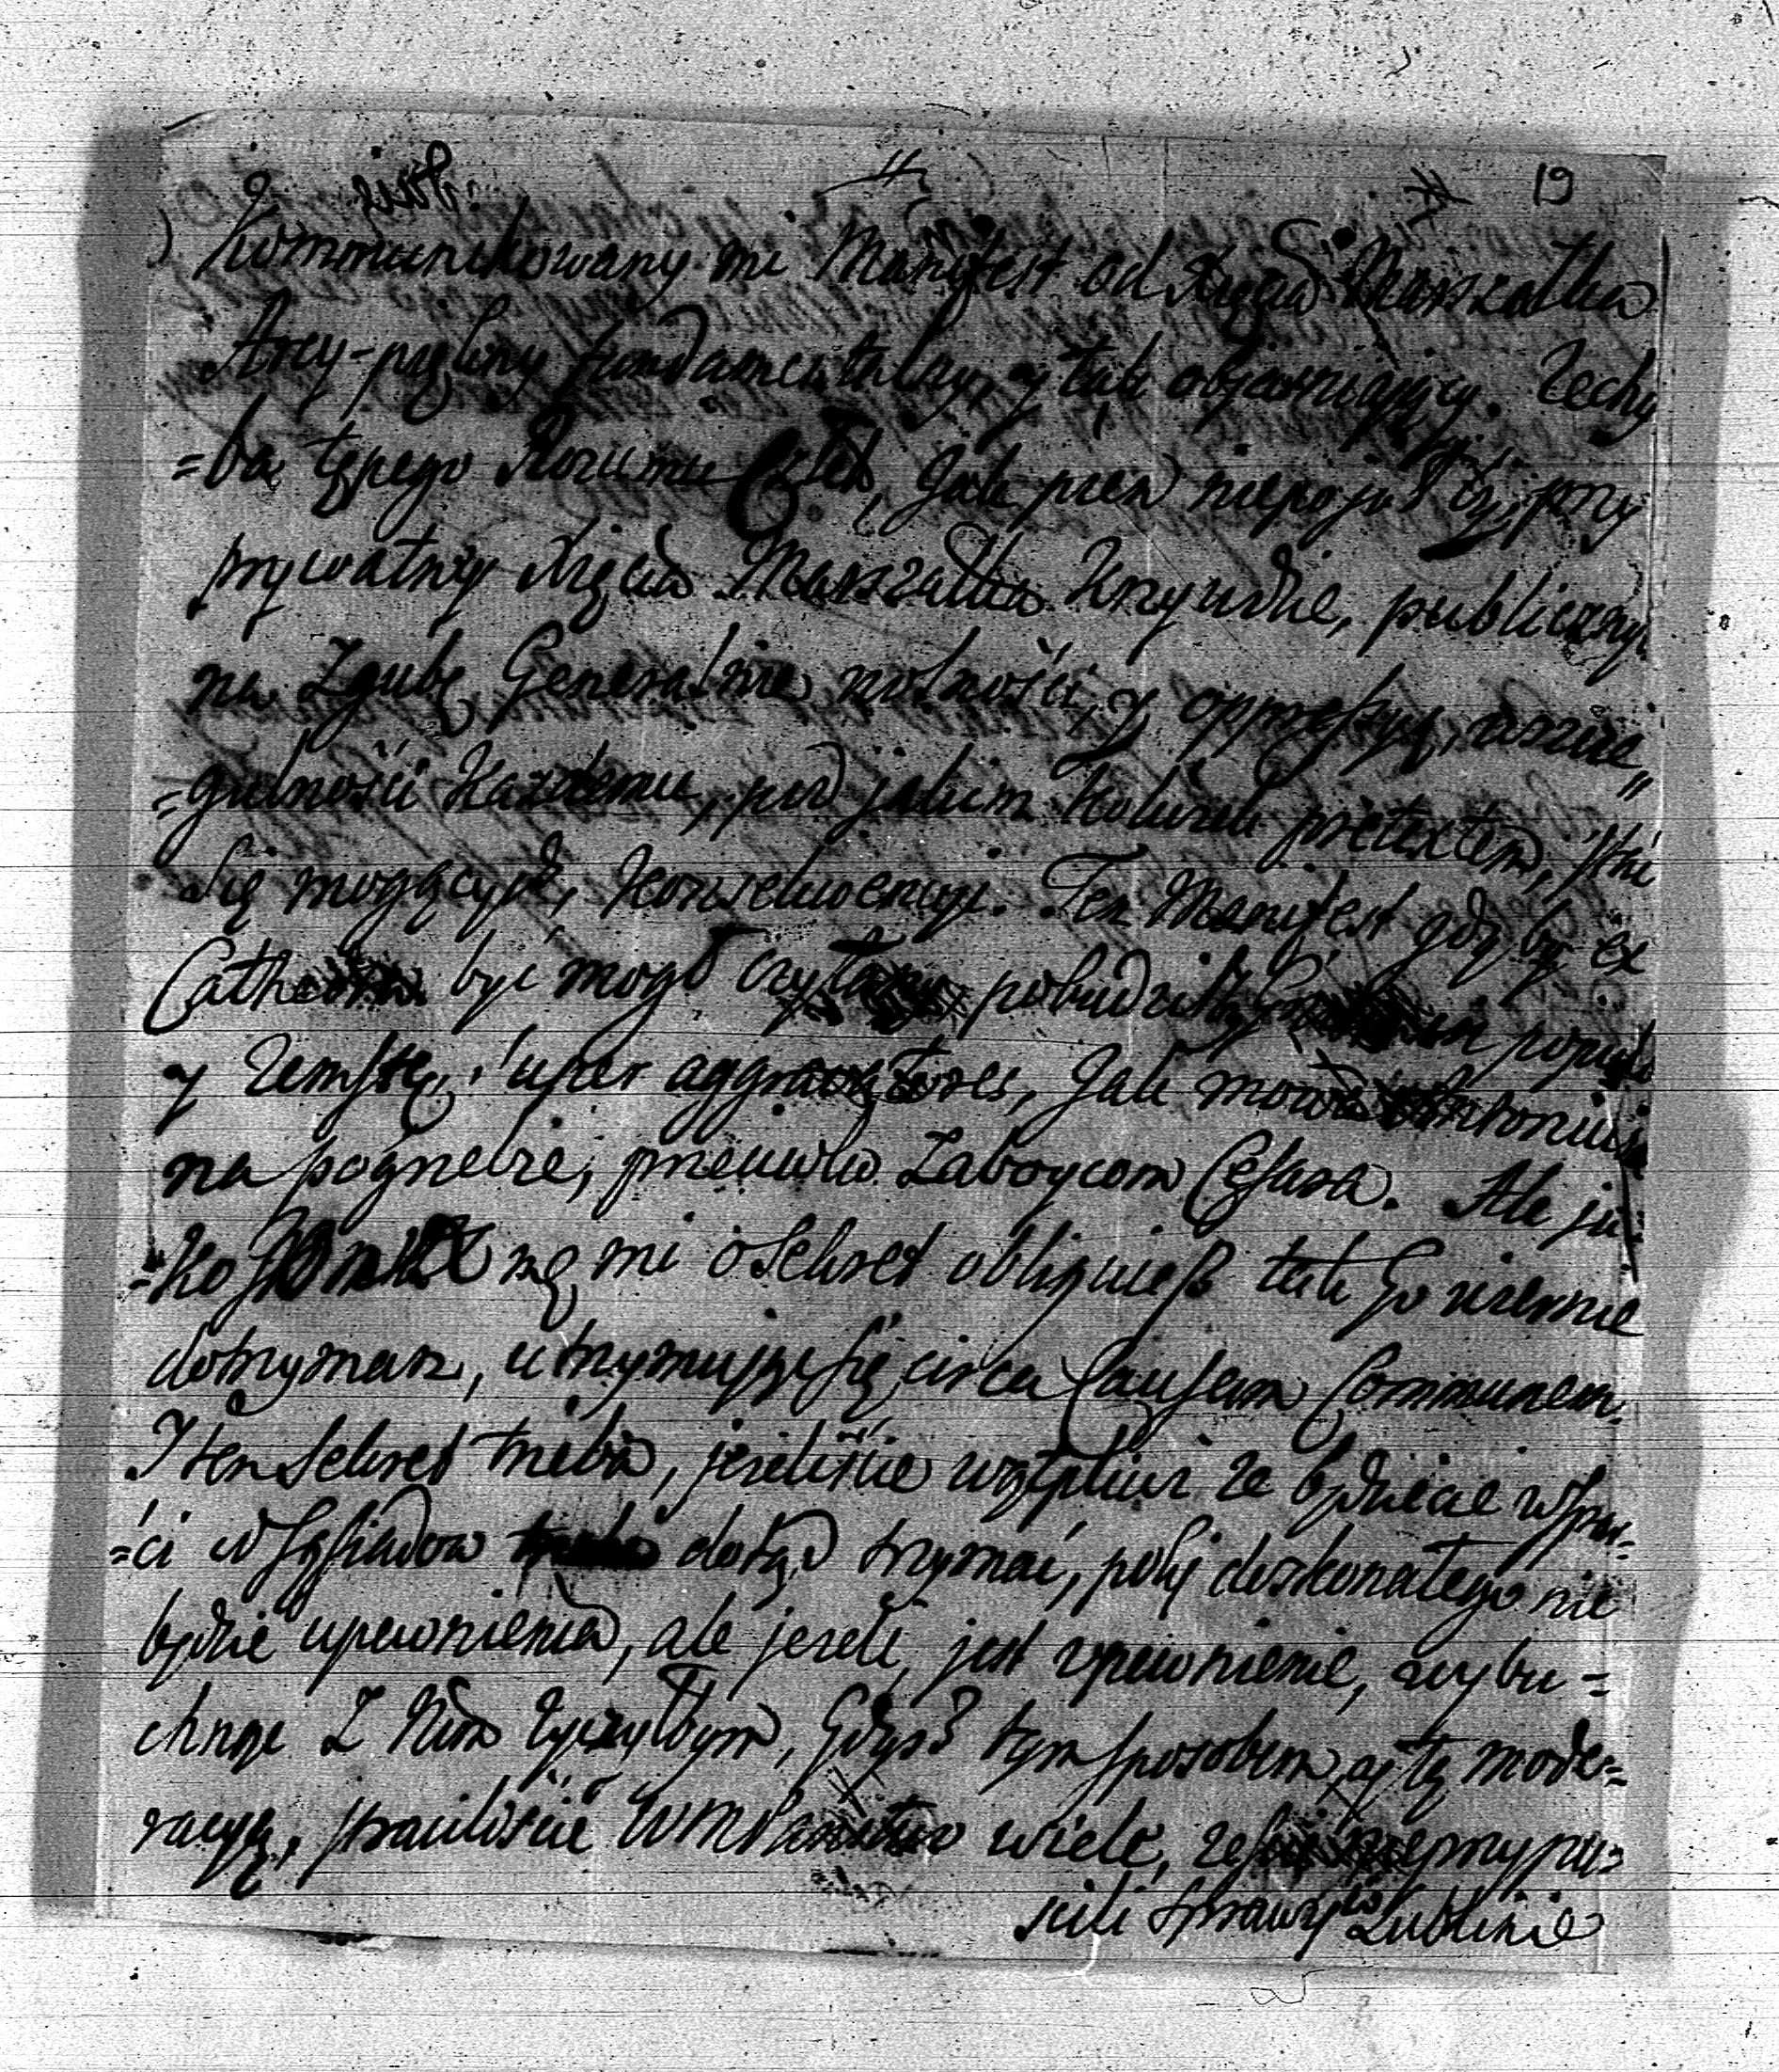 19
Kommunikowany mi Manifest od Xięcia Marszałka
Arcy-piękny fundamentalny, y tak objasniaiący. Zechy
=ba tępego Rozumu Człek, Jak pien niepojął by, przy
prywatney Xięcia Marszałka Krzywdzie, publiczney
na Zgubę Generalnie wolności, y oppressyą, wszcze„
=gulności Każdemu, pod jakim kolwiek pretextem, stać
się mogących, konsekwencyi. Ten Manifest gdy by ex
Cathedra być mogł czytany, pobudziłby populi
y Zemstę, super aggressores, Jak mowa Antoniusza
na pogrzebie, przeciwko Zaboycom Cesara. Ale ja=
=ko mi o Sekret obligujesz tak Go wiernie
dotrzymam, utrzymując się circa Causam Communem.
I ten Sekret trzeba, jeżeliście wątpliwi że będziecie wspar=
=ci od Sąsiadow dotąd trzymać, poki doskonałego nie
będzie upewnienia, ale jeżeli jest upewnienie, wybu=
chnąć Z Nim życzyłbym, Gdyż tym sposobem, aż tą mode=
racyą, straciliście WMPaństwo wiele, żeście nieprzypu=
scili Sprawy w Lublinie